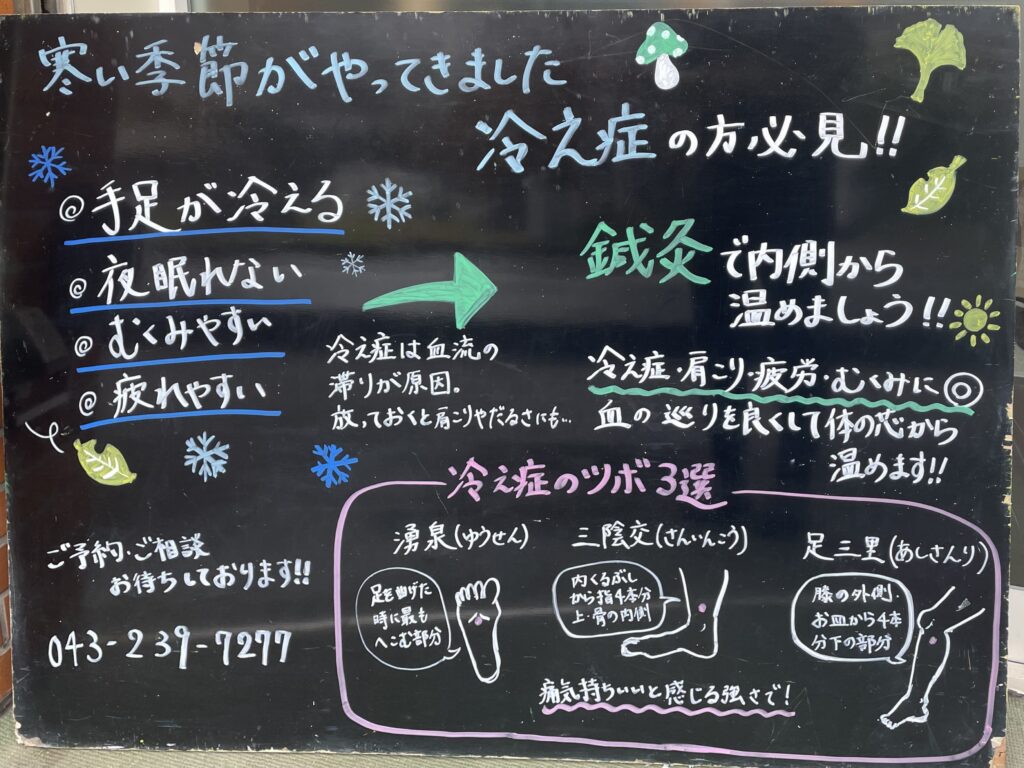 寒い季節がやってきました
冷え症の方必見!!
@手足が冷える
@夜眠れない
@むくみやすい
@疲れやすい
冷え症は血流の
滞りが原因。
放っておくと肩こりやだるさにも…
鍼灸で内側から
温めましょう!!
冷え症・肩こり・疲労・むくみに◎
血の巡りを良くして体の芯から
温めます!!
ご予約・ご相談
お待ちしております!!
043-239-7277
冷え症のツボ3選
湧泉(ゆうせん)
足を曲げた
時に最も
へこむ部分
三陰交(さんいんこう)
内くるぶし
から指4本分
上・骨の内側
足三里(あしさんり)
膝の外側・
お皿から4本
分下の部分
痛気持ちいいと感じる強さで!